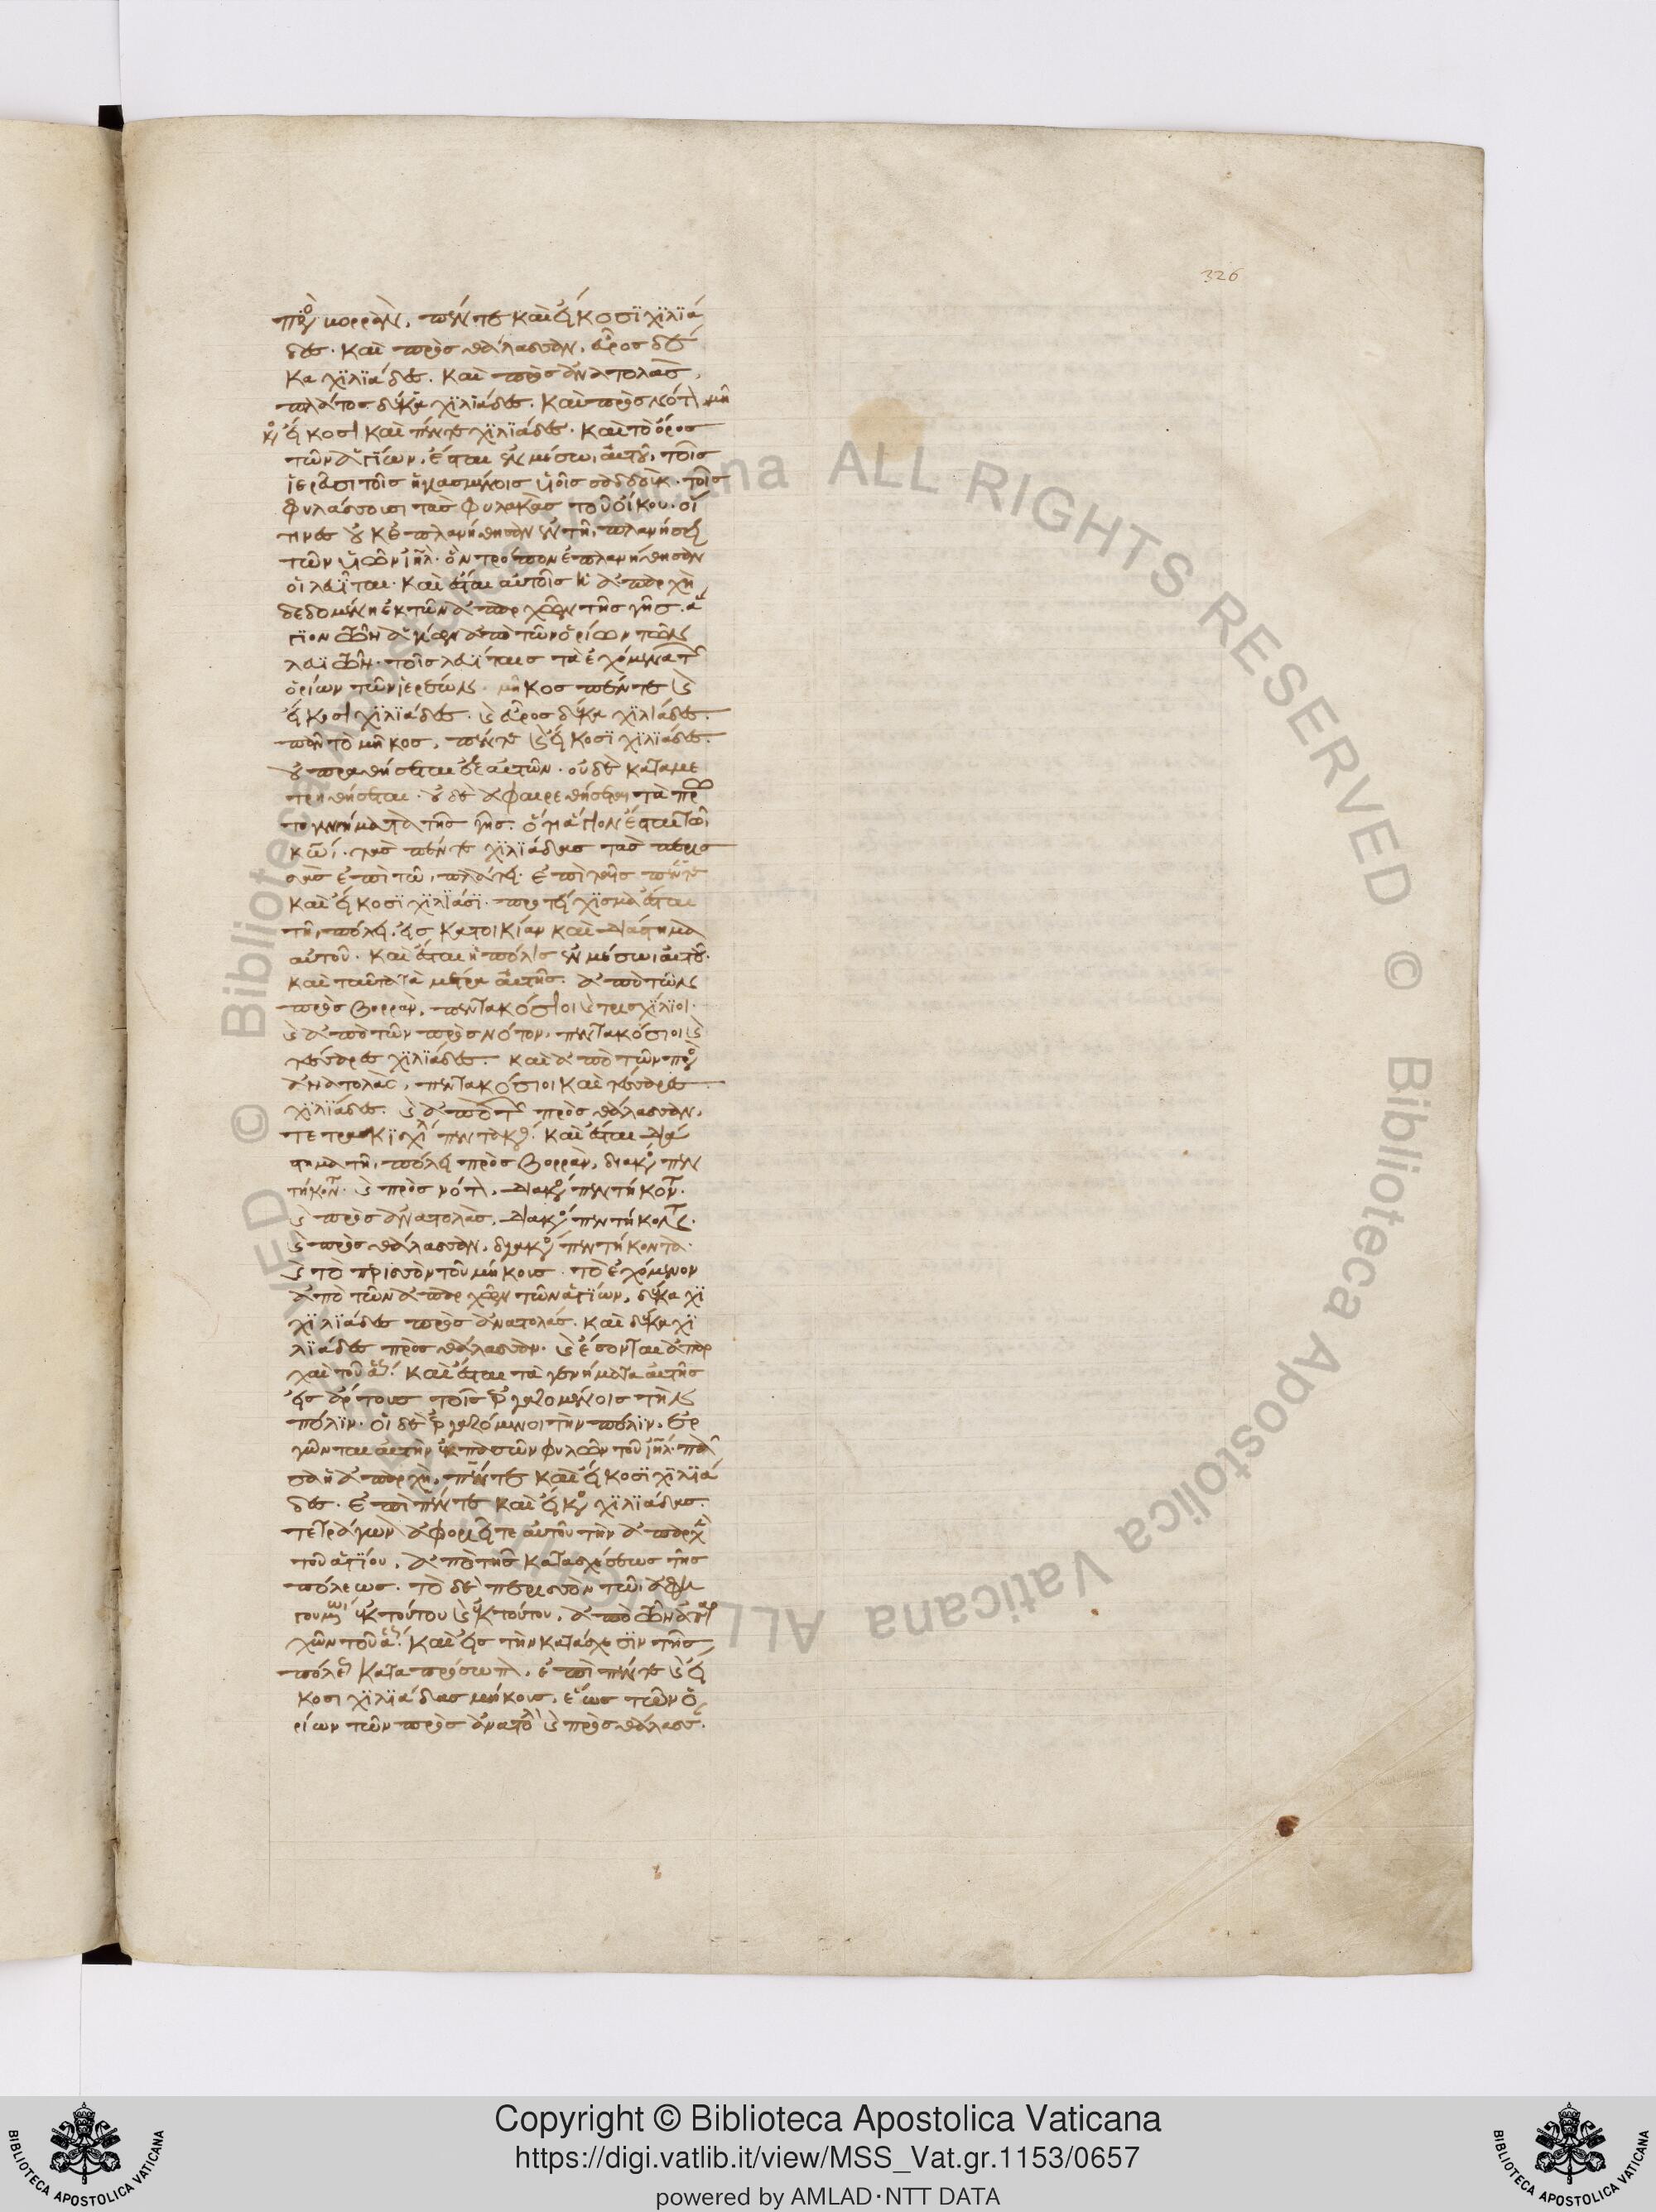 326
πρὸς βορρᾶν, πέντε καὶ εἴκοσι χιλιά
δες. καὶ πρὸς θάλασσαν, εὖρος δέ
κα χιλιάδες. καὶ πρὸς ἀνατολὰς,
πλάτος δέκα χιλιάδες. καὶ πρὸς νότον μῆ
κος εἴκοσι καὶ πέντε χιλιάδες. καὶ τὸ ὄρος
τῶν ἁγίων, ἔσται ἐν μέσωι αὐτοῦ, τοῖς
ἱερεῦσι τοῖς ἡγιασμένοις υἱοῖς σαδδοὺκ. τοῖς
φυλάσσουσι τὰς φυλακὰς τοῦ οἴκου. οἵ
τινες οὐκ ἐπλανήθησαν ἐν τῆι πλανήσει
τῶν υἱῶν ιηλ. ὃν τρόπον ἐπλανήθησαν
οἱ λευῖται. καὶ ἔσται αὐτοῖς ἡ ἀπαρχὴ
δεδομένη ἐκ τῶν ἀπαρχῶν τῆς γῆς. ἅ
γιον τῶν ἁγίων ἀπὸ τῶν ὁρίων τῶν
λευιτῶν. τοῖς λευίταις τὰ ἐχόμενα τῶν
ὁρίων τῶν ἱερέων. μῆκος πέντε καὶ
εἴκοσι χιλιάδες. καὶ εὖρος δέκα χιλιάδες.
πᾶν τὸ μῆκος, πέντε καὶ εἴκοσι χιλιάδες.
οὐ πραθήσεται ἐξ αὐτῶν. οὐδὲ καταμε
τρηθήσεται. οὐδὲ ἀφαιρεθήσεται τὰ πρω
τογεννήματα τῆς γῆς. ὅτι ἅγιον ἔσται τῶι
κωι. τὰς πέντε χιλιάδας τὰς περισ
σὰς ἐπὶ τῶι πλάτει. ἐπὶ ταῖς πέντε
καὶ εἴκοσι χιλιάσι. προτείχισμα ἔσται
τῆι πόλει. εἰς κατοικίαν καὶ διάστημα
αὐτοῦ. καὶ ἔσται ἡ πόλις ἐν μέσωι αὐτοῦ.
καὶ ταῦτα τὰ μέτρα αὐτῆς. ἀπὸ τῶν
πρὸς βορρᾶν, πεντακόσιοι καὶ τρισχίλιοι.
καὶ ἀπὸ τῶν πρὸς νότον, πεντακόσιοι καὶ
τέσσαρες χιλιάδες. καὶ ἀπὸ τῶν πρὸς
ἀνατολὰς, πεντακόσιοι καὶ τέσσαρες
χιλιάδες. καὶ ἀπὸ τῶν πρὸς θάλασσαν,
τετρακισχιλ πεντακο. καὶ ἔσται διά
στημα τῆι πόλει πρὸς βορρᾶν, διακο πεν
τήκοντ. καὶ πρὸς νότον, διακο πεντήκοντ.
καὶ πρὸς ἀνατολὰς, διακο πεντήκοντ.
καὶ πρὸς θάλασσαν, διακο πεντήκοντα.
καὶ τὸ περισσὸν τοῦ μήκους. τὸ ἐχόμενον
ἀπὸ τῶν ἀπαρχῶν τῶν ἁγίων, δέκα χι
χιλιάδες πρὸς ἀνατολάς. καὶ δέκα χι
λιάδες πρὸς θάλασσαν. καὶ ἔσονται ἀπαρ
χαὶ τοῦ ἁγ. καὶ ἔσται τὰ γεννήματα αὐτῆς
εἰς ἄρτους τοῖς ἐργαζομένοις τὴν
πόλιν. οἱ δὲ ἐργαζόμενοι τὴν πόλιν, ἐρ
γῶνται αὐτὴν ἐκ πασῶν φυλῶν τοῦ ιηλ. πᾶ
σα ἡ ἀπαρχὴ, πέντε καὶ εἴκοσι χιλιά
δες. ἐπὶ πέντε καὶ εἴκο χιλιάδας.
τετράγων ἀφοριεῖτε αὐτοῦ τὴν ἀπαρχὴ
τοῦ ἁγίου, ἀπὸ τῆς κατασχέσεως τῆς
πόλεως. τὸ δὲ περισσὸν τῶι ἀφη
γουμένωι ἐκ τούτου καὶ ἐκ τούτου, ἀπὸ τῶν ἀπαρ
χῶν τοῦ ἁγ. καὶ εἰς τὴν κατάσχεσιν τῆς
πόλε κατὰ πρόσωπον, ἐπὶ πέντε καὶ εἴ
κοσι χιλιάδας μήκους, ἕως τῶν ὁ
ρίων τῶν πρὸς ἀνατολ καὶ πρὸς θάλασσ.
Copyright © Biblioteca Apostolica Vaticana
https://digi.vatlib.it/view/MSS_Vat.gr.1153/0657
powered by AMLAD·NTT DATA
BIBLIOTECA APOSTOLICA VATICANA
BIBLIOTECA APOSTOLICA VATICANA
© Biblioteca Apostolica Vaticana ALL RIGHTS RESERVED © Biblioteca Apostolica Vaticana ALL RIGHTS RESERVED